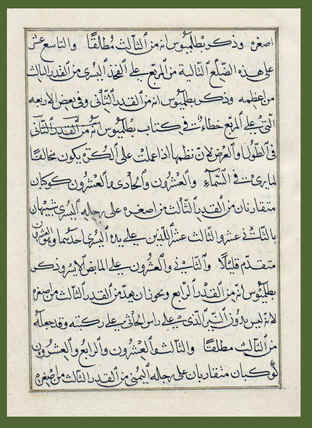 اصغره وذكر بطلميوس انه من الثالث مطلقا والتاسع عشر
على هذه الضلع التالية من المربع على الفخذ اليسرى من القدر الثالث
من عظمه وذكر بطلميوس انه من القدر الثانى وفى بعض الاربعه
التى على المربع خطاء فى كتاب بطلميوس
فى الطول او العرض لان نظمها اذا عملت على الكرة يكون مخالفا
لما يرى فى السماء والعشرون والحادى والعشرون كوكبان
متقاربان من القدر الثالث من اصغره على رجله اليسرى شبيهان
بالثانى عشر والثالث عشر اللذين على يده اليسرى احدهما
متقدم قليلا والثانى والعشرون على المابض الايسر ذكر
بطلميوس انه من القدر الرابع وهو من القدر الثالث من اصغره
لانه ليس بدون النير الذى على راس الحاثى على ركبته وقد جعله
من الثالث مطلقا والثالث والعشرون والرابع والعشرون
كوكبان متقاربان على رجله اليمنى من القدر الثالث من اصغره